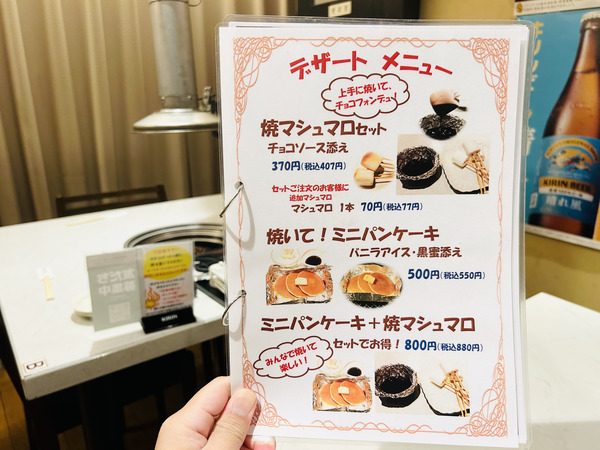 デザート メニュー
上手に焼いて、
チョコフォンデュ!
焼マシュマロセット
チョコソース添え
370円(税込407円)
セットご注文のお客様に
追加マシュマロ
マシュマロ 1本 70円(税込77円)
焼いて!ミニパンケーキ
バニラアイス・黒蜜添え
500円(税込550円)
ミニパンケーキ+焼マシュマロ
セットでお得! 800円(税込880円)
みんなで焼いて
楽しい!
友だち
募集中
KIRIN
KIRIN BEER
晴れ風